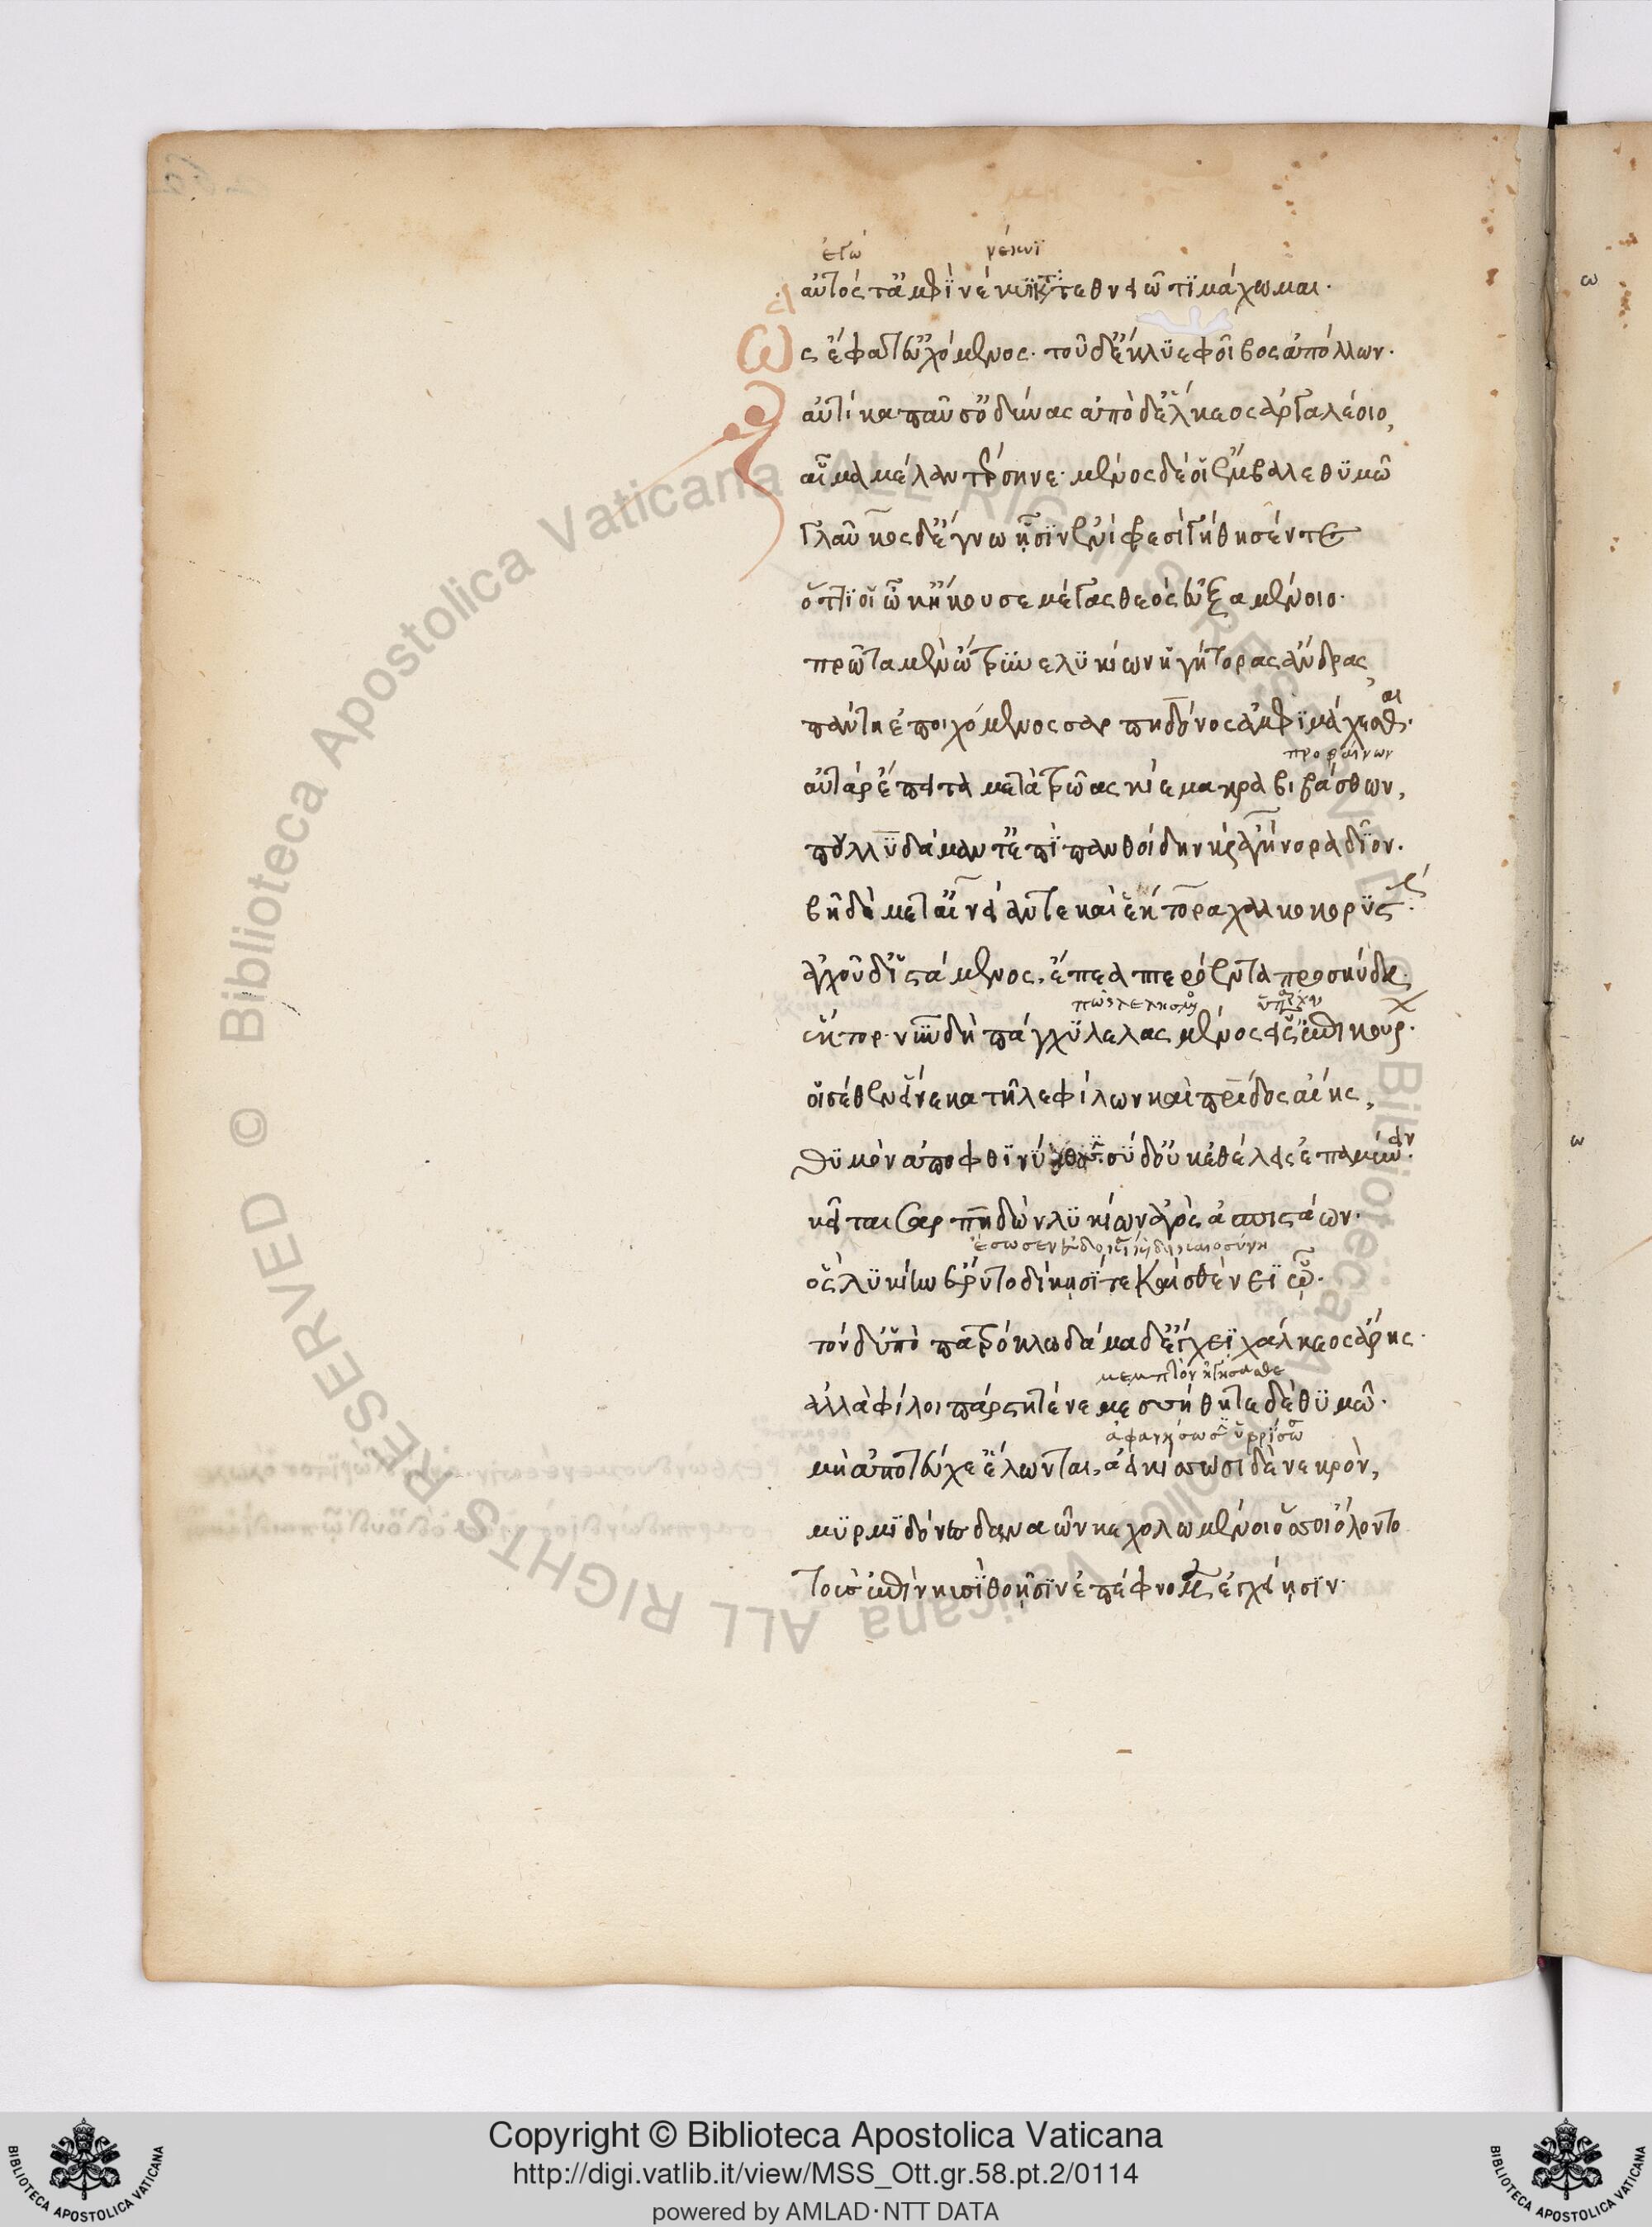 ἐγώ νέκυϊ
αὐτός τ' ἀμφὶ νέκυϊ κατατεθνειῶτι μάχωμαι.
ὣς ἔφατ' εὐχόμενος· τοῦ δ' ἔκλυε φοῖβος ἀπόλλων.
αὐτίκα παῦσ' ὀδύνας ἀπὸ δ' ἕλκεος ἀργαλέοιο,
αἷμα μέλαν τέρσηνε· μένος δέ οἱ ἔμβαλε θυμῶ
γλαῦκος δ' ἔγνω ᾗσιν ἐνὶ φρεσὶ γήθησέν τε
ὅττι οἱ ὦκ' ἤκουσε μέγας θεὸς εὐξαμένοιο·
πρῶτα μὲν ὤτρυνε λυκίων ἡγήτορας ἄνδρας,
πάντη ἐποιχόμενος σαρπηδόνος ἀμφιμάχεσθαι.
προβαίνων
αὐτὰρ ἔπειτα μετὰ τρῶας κίε μακρὰ βιβάσθων,
πουλυδάμαντ' ἐπὶ πανθοίδην καὶ ἀγήνορα δῖον.
βῆ δὲ μετ' αἰνείαν τε καὶ ἕκτορα χαλκοκορυστήν.
ἀγχοῦ δ' ἱστάμενος, ἔπεα πτερόεντα προσηύδα.
ἕκτορ· νῦν δὴ πάγχυ λελασμένος εἶς ἐπικούρων.
οἳ σέθεν εἵνεκα τῆλε φίλων καὶ πατρίδος αἴης,
θυμὸν ἀποφθινύθουσι· σὺ δ' οὐκ ἐθέλεις ἐπαμύνειν.
κεῖται σαρπηδὼν λυκίων ἀγὸς ἀσπιστάων.
ὃς λυκίην εἴρυτο δίκησί τε καὶ σθένεϊ ᾧ.
τὸν δ' ὑπὸ πατρόκλω δάμασ' ἔγχεϊ χάλκεος ἄρης.
ἀλλὰ φίλοι πάρστητε νεμεσσήθητε δὲ θυμῶ.
μὴ ἀπὸ τεύχε' ἕλωνται, ἀεικίσσωσι δὲ νεκρὸν,
μυρμιδόνες δαναῶν κεχολωμένοι ὅσσοι ὄλοντο
τοὺς ἐπὶ νηυσὶ θοῇσιν ἐπέφνομεν ἐγχείησιν.
Copyright © Biblioteca Apostolica Vaticana
http://digi.vatlib.it/view/MSS_Ott.gr.58.pt.2/0114
powered by AMLAD·NTT DATA